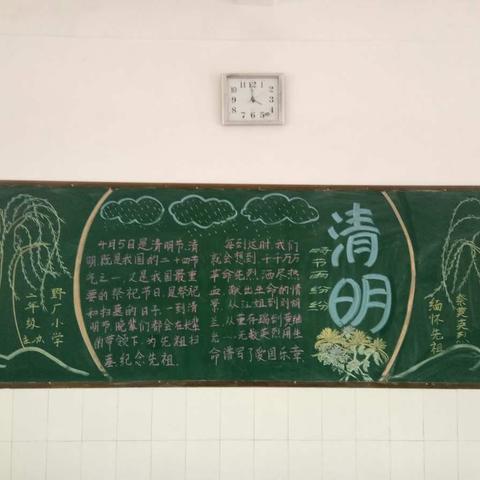 野广小学
一年级主办
4月5日是清明节,清
明既是我国的二十四节
气之一,又是我国最重
要的祭祀节日,是祭祀
和扫墓的日子.一到清
明节,晚辈们都会在长辈
的带领下,为先祖扫
墓,纪念先祖.
每到这时,我们
就会想到,千千万万
革命先烈,洒尽热
血,献出生命的情
景.从江姐到刘胡
兰,从董存瑞到黄继
光……无数英烈用生
命谱写了爱国乐章.
清明
时节雨纷纷
缅怀先祖
祭奠英烈
12
11
10
9
8
7
6
5
4
3
2
1